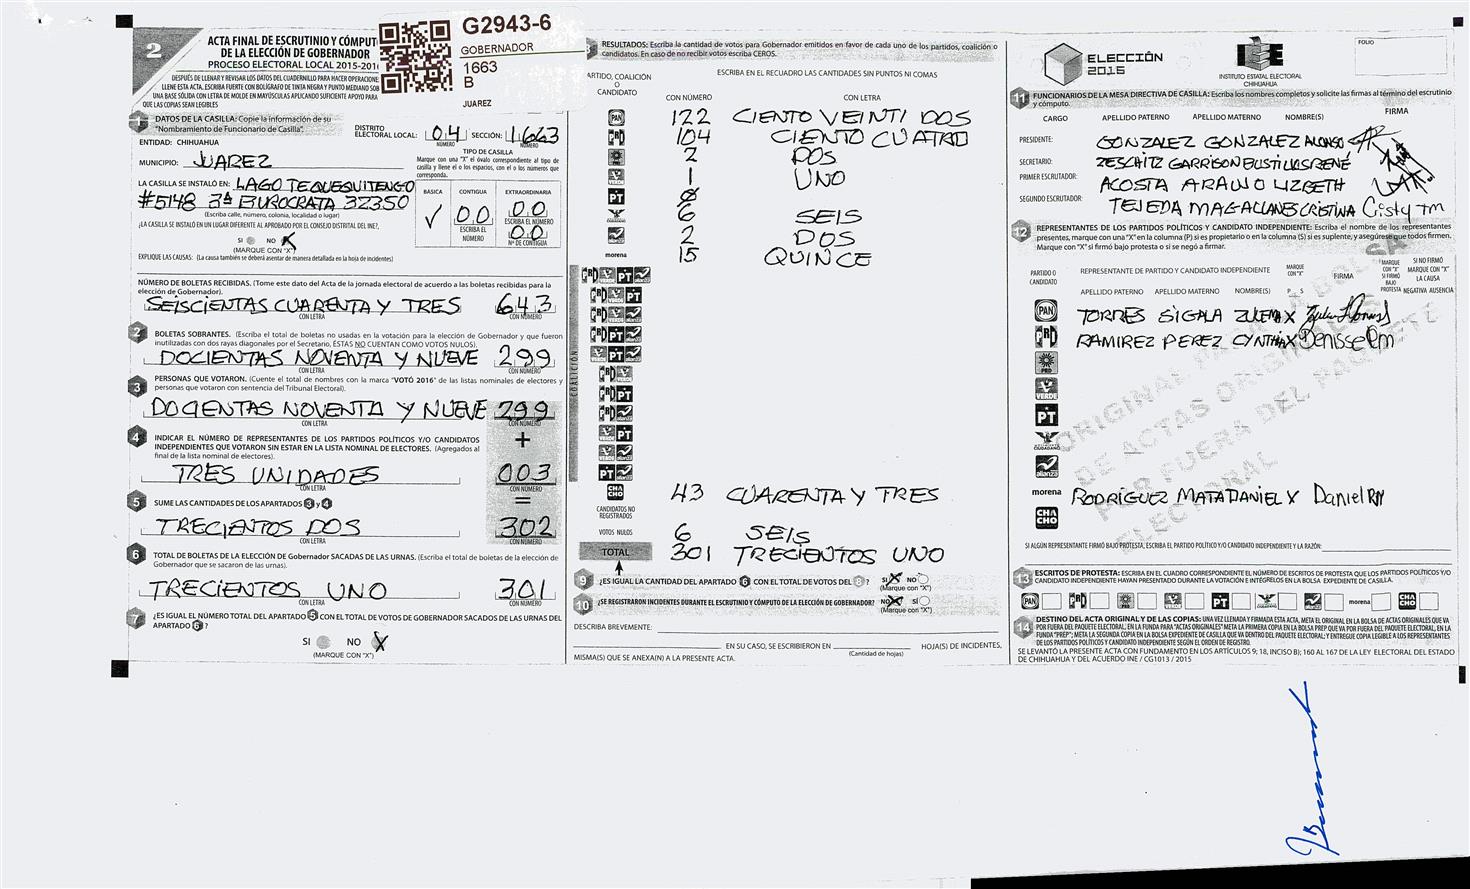 2
ACTA FINAL DE ESCRUTINIO Y CÓMPUT
DE LA ELECCIÓN DE GOBERNADOR
PROCESO ELECTORAL LOCAL 2015-201
DESPUÉS DE LLENAR Y REVISAR LOS DATOS DEL CUADERNILLO PARA HACER OPERACIONE
LLENE ESTA ACTA, ESCRIBA FUERTE CON BOLÍGRAFO DE TINTA NEGRA Y PUNTO MEDIANO SOB
UNA BASE SÓLIDA CON LETRA DE MOLDE EN MAYÚSCULAS APLICANDO SUFICIENTE APOYO PARA
QUE LAS COPIAS SEAN LEGIBLES
G2943-6
GOBERNADOR
1663
B
JUAREZ
1 DATOS DE LA CASILLA: Copie la información de su
"Nombramiento de Funcionario de Casilla".
ENTIDAD: CHIHUAHUA
DISTRITO ELECTORAL LOCAL: 04 SECCIÓN: 1663
NÚMERO NÚMERO
MUNICIPIO: JUAREZ
TIPO DE CASILLA
Marque con una "X" el óvalo correspondiente al tipo de
casilla y llene el o los espacios, con el o los números que
corresponda.
LA CASILLA SE INSTALÓ EN: LAGO TEQUEQUITENGO
#5148 3ª BUROCRATA 32350
(Escriba calle, número, colonia, localidad o lugar)
BÁSICA CONTIGUA EXTRAORDINARIA
✓ 00 00
ESCRIBA EL NÚMERO ESCRIBA EL NÚMERO
00
Nº DE CONTIGUA
¿LA CASILLA SE INSTALÓ EN UN LUGAR DIFERENTE AL APROBADO POR EL CONSEJO DISTRITAL DEL INE?,
SI NO X
(MARQUE CON "X")
EXPLIQUE LAS CAUSAS: (La causa también se deberá asentar de manera detallada en la hoja de incidentes)
NÚMERO DE BOLETAS RECIBIDAS. (Tome este dato del Acta de la jornada electoral de acuerdo a las boletas recibidas para la
elección de Gobernador).
SEISCIENTAS CUARENTA Y TRES 643
CON LETRA CON NÚMERO
2 BOLETAS SOBRANTES. (Escriba el total de boletas no usadas en la votación para la elección de Gobernador y que fueron
inutilizadas con dos rayas diagonales por el Secretario, ÉSTAS NO CUENTAN COMO VOTOS NULOS).
DOCIENTAS NOVENTA Y NUEVE 299
CON LETRA CON NÚMERO
3 PERSONAS QUE VOTARON. (Cuente el total de nombres con la marca "VOTÓ 2016" de las listas nominales de electores y
personas que votaron con sentencia del Tribunal Electoral).
DOCIENTAS NOVENTA Y NUEVE 299
CON LETRA CON NÚMERO
+
4 INDICAR EL NÚMERO DE REPRESENTANTES DE LOS PARTIDOS POLÍTICOS Y/O CANDIDATOS
INDEPENDIENTES QUE VOTARON SIN ESTAR EN LA LISTA NOMINAL DE ELECTORES. (Agregados al
final de la lista nominal de electores).
TRES UNIDADES 003
CON LETRA CON NÚMERO
=
5 SUME LAS CANTIDADES DE LOS APARTADOS 3 y 4
TRECIENTOS DOS 302
CON LETRA CON NÚMERO
6 TOTAL DE BOLETAS DE LA ELECCIÓN DE Gobernador SACADAS DE LAS URNAS. (Escriba el total de boletas de la elección de
Gobernador que se sacaron de las urnas).
TRECIENTOS UNO 301
CON LETRA CON NÚMERO
7 ¿ES IGUAL EL NÚMERO TOTAL DEL APARTADO 5 CON EL TOTAL DE VOTOS DE GOBERNADOR SACADOS DE LAS URNAS DEL
APARTADO 6?
SI NO X
(MARQUE CON "X")
8 RESULTADOS: Escriba la cantidad de votos para Gobernador emitidos en favor de cada uno de los partidos, coalición o
candidatos. En caso de no recibir votos escriba CEROS.
PARTIDO, COALICIÓN
O
CANDIDATO
ESCRIBA EN EL RECUADRO LAS CANTIDADES SIN PUNTOS NI COMAS
CON NÚMERO CON LETRA
PAN 122 CIENTO VEINTI DOS
PRI 104 CIENTO CUATRO
PRD 2 DOS
VERDE 1 UNO
PT 0
6 SEIS
alianza 2 DOS
morena 15 QUINCE
COALICIÓN
PRI VERDE PT alianza
PRI VERDE PT
PRI VERDE alianza
PRI PT alianza
VERDE PT alianza
PRI VERDE
PRI PT
PRI alianza
VERDE PT
VERDE alianza
PT alianza
CHACHO 43 CUARENTA Y TRES
CANDIDATOS NO
REGISTRADOS
VOTOS NULOS 6 SEIS
TOTAL 301 TRECIENTOS UNO
9 ¿ES IGUAL LA CANTIDAD DEL APARTADO 6 CON EL TOTAL DE VOTOS DEL 8? SI X NO
(Marque con "X")
10 ¿SE REGISTRARON INCIDENTES DURANTE EL ESCRUTINIO Y CÓMPUTO DE LA ELECCIÓN DE GOBERNADOR? NO X SI
(Marque con "X")
DESCRIBA BREVEMENTE:
EN SU CASO, SE ESCRIBIERON EN HOJA(S) DE INCIDENTES,
(Cantidad de hojas)
MISMA(S) QUE SE ANEXA(N) A LA PRESENTE ACTA.
ELECCIÓN
2015
IEE
INSTITUTO ESTATAL ELECTORAL
CHIHUAHUA
FOLIO
11 FUNCIONARIOS DE LA MESA DIRECTIVA DE CASILLA: Escriba los nombres completos y solicite las firmas al término del escrutinio
y cómputo.
CARGO APELLIDO PATERNO APELLIDO MATERNO NOMBRE(S) FIRMA
PRESIDENTE: GONZALEZ GONZALEZ ALONSO
SECRETARIO: ZESCHITZ GARRISON BUSTILLOS RENÉ
PRIMER ESCRUTADOR: ACOSTA ARAUJO LIZBETH
SEGUNDO ESCRUTADOR: TEJEDA MAGALLANES CRISTINA Cristy TM
12 REPRESENTANTES DE LOS PARTIDOS POLÍTICOS Y CANDIDATO INDEPENDIENTE: Escriba el nombre de los representantes
presentes, marque con una "X" en la columna (P) si es propietario o en la columna (S) si es suplente, y asegúrese que todos firmen.
Marque con "X" si firmó bajo protesta o si se negó a firmar.
PARTIDO O CANDIDATO REPRESENTANTE DE PARTIDO Y CANDIDATO INDEPENDIENTE MARQUE CON "X" FIRMA MARQUE CON "X" SI FIRMÓ BAJO PROTESTA SI NO FIRMÓ MARQUE CON "X" LA CAUSA
APELLIDO PATERNO APELLIDO MATERNO NOMBRE(S) P S NEGATIVA AUSENCIA
PAN TORRES SIGALA ZULEMA X
PRI RAMIREZ PEREZ CYNTHIA X Denisse RM
PRD
VERDE
PT
alianza
morena RODRÍGUEZ MATA DANIEL X Daniel RM
CHACHO
ORIGINAL PARA LA BOLSA
DE ACTAS ORIGINALES
POR FUERA DEL PAQUETE
ELECTORAL
SI ALGÚN REPRESENTANTE FIRMÓ BAJO PROTESTA, ESCRIBA EL PARTIDO POLÍTICO Y/O CANDIDATO INDEPENDIENTE Y LA RAZÓN:
13 ESCRITOS DE PROTESTA: ESCRIBA EN EL CUADRO CORRESPONDIENTE EL NÚMERO DE ESCRITOS DE PROTESTA QUE LOS PARTIDOS POLÍTICOS Y/O
CANDIDATO INDEPENDIENTE HAYAN PRESENTADO DURANTE LA VOTACIÓN E INTÉGRELOS EN LA BOLSA EXPEDIENTE DE CASILLA.
PAN PRI PRD VERDE PT alianza morena CHACHO
14 DESTINO DEL ACTA ORIGINAL Y DE LAS COPIAS: UNA VEZ LLENADA Y FIRMADA ESTA ACTA, META EL ORIGINAL EN LA BOLSA DE ACTAS ORIGINALES QUE VA
POR FUERA DEL PAQUETE ELECTORAL, EN LA FUNDA PARA "ACTAS ORIGINALES" META LA PRIMERA COPIA EN LA BOLSA PREP QUE VA POR FUERA DEL PAQUETE ELECTORAL, EN LA
FUNDA "PREP"; META LA SEGUNDA COPIA EN LA BOLSA EXPEDIENTE DE CASILLA QUE VA DENTRO DEL PAQUETE ELECTORAL; Y ENTREGUE COPIA LEGIBLE A LOS REPRESENTANTES
DE LOS PARTIDOS POLÍTICOS Y CANDIDATO INDEPENDIENTE SEGÚN EL ORDEN DE REGISTRO.
SE LEVANTÓ LA PRESENTE ACTA CON FUNDAMENTO EN LOS ARTÍCULOS 9; 18, INCISO B); 160 AL 167 DE LA LEY ELECTORAL DEL ESTADO
DE CHIHUAHUA Y DEL ACUERDO INE / CG1013 / 2015